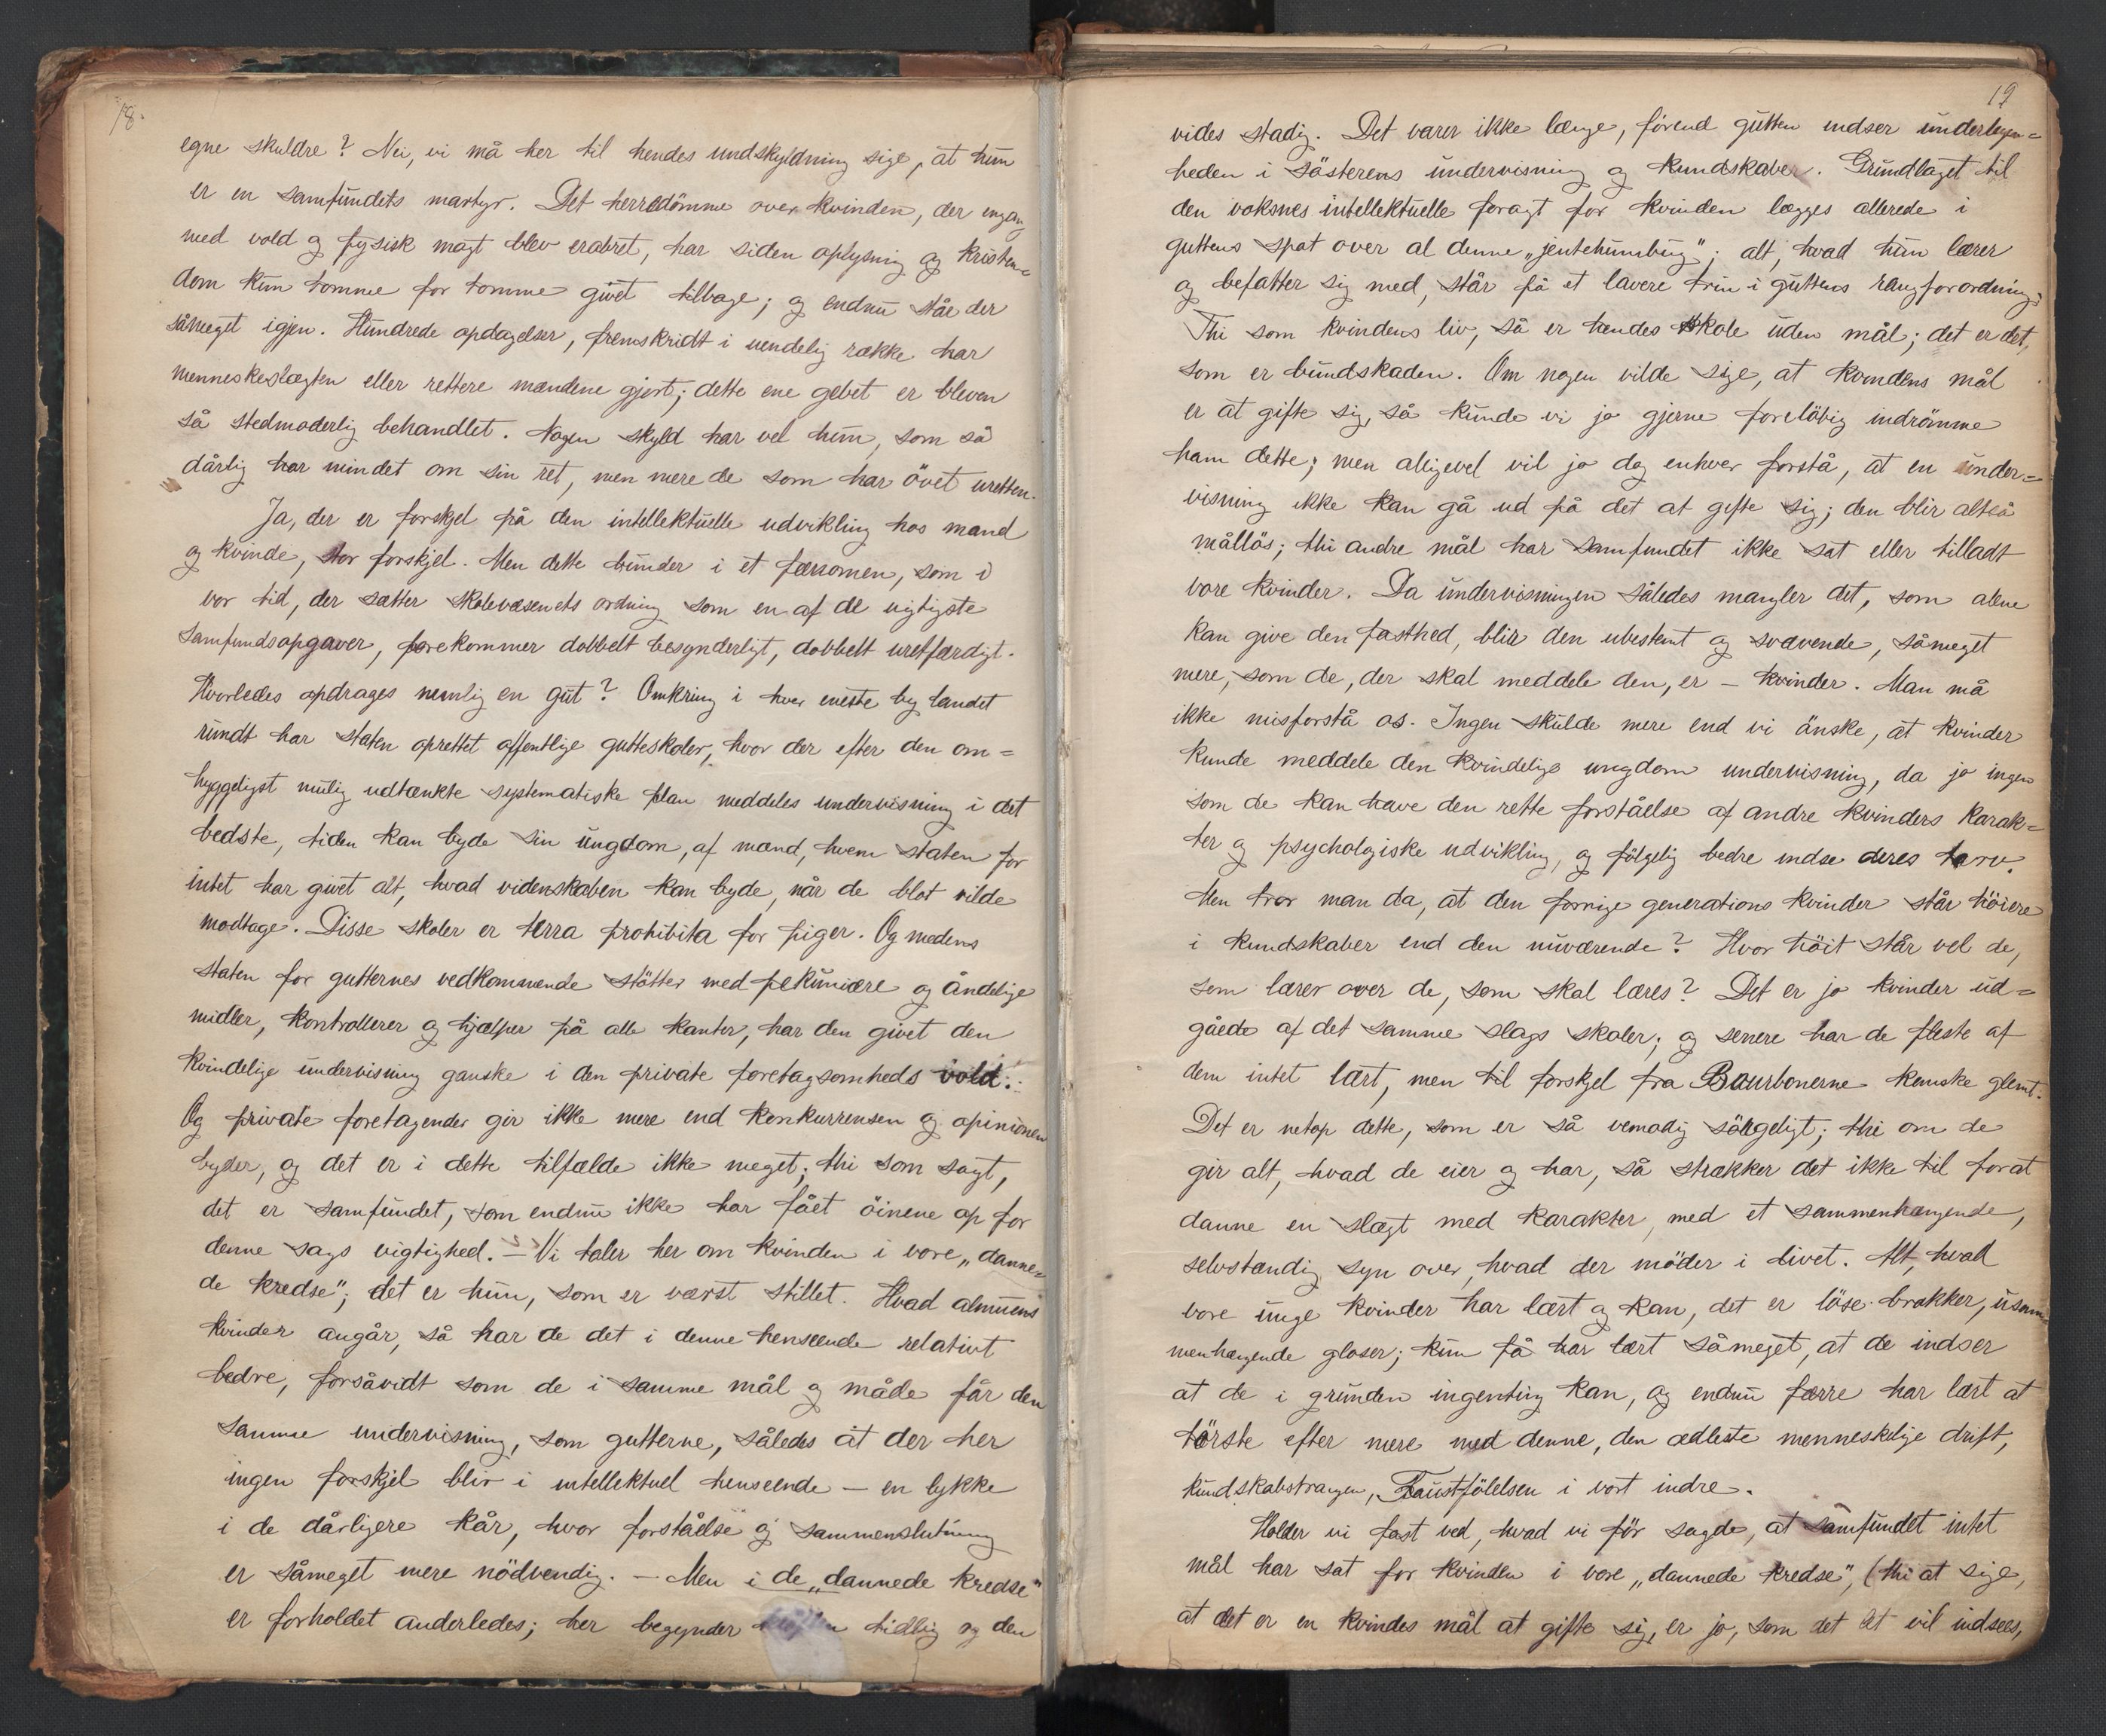 18.
egne skuldre? Nei, vi må her til hendes undskyldning sige, at hun
er en samfundets martyr. Det herredömme over kvinden, der engang
med vold og fysisk magt blev erobret, har siden oplysning og kristen=
dom kun tomme for tomme givet tilbage; og endnu står der
såmeget igjen. Hundrede opdagelser, fremskridt i uendelig række har
menneskeslægten eller rettere mændene gjort; dette ene gebet er bleven
så stedmoderlig behandlet. Nogen skyld har vel hun, som så
dårlig har mindet om sin ret, men mere de som har övet uretten.
Ja, der er forskjel på den intellektuelle udvikling hos mand
og kvinde, stor forskjel. Men dette bunder i et fænomen, som i
vor tid, der sætter skolevæsenets ordning som en af de vigtigste
samfundsopgaver, forekommer dobbelt besynderligt, dobbelt uretfærdigt.
Hvorledes opdrages nemlig en gut? Omkring i hver eneste by landet
rundt har staten oprettet offentlige gutteskoler, hvor der efter den om=
hyggeligst mulig udtænkte systematiske plan meddeles undervisning i det
bedste, tiden kan byde sin ungdom, af mænd, hvem staten for
intet har givet alt, hvad videnskaben kan byde, når de blot vilde
modtage. Disse skoler er terra prohibita for piger. Og medens
staten for gutternes vedkommende stötter med pekuniære og åndelige
midler, kontrollerer og hjælper på alle kanter, har den givet den
kvindelige undervisning ganske i den private foretagsomheds vold.
Og private foretagender gir ikke mere end konkurrensen og opinionen
byder, og det er i dette tilfælde ikke meget; thi som sagt,
det er samfundet, som endnu ikke har fået öinene op for
denne sags vigtighed. — Vi taler her om kvinden i vore „danne=
de kredse"; det er hun, som er værst stillet. Hvad almuens
kvinder angår, så har de det i denne henseende relativt
bedre, forsåvidt som de i samme mål og måde får den
samme undervisning, som gutterne, således at der her
ingen forskjel blir i intellektuel henseende — en lykke
i de dårligere kår, hvor forståelse og sammenslutning
er såmeget mere nödvendig. — Men i de „dannede kredse"
er forholdet anderledes; her begynder tidlig og den
19
vides stadig. Det varer ikke længe, förend gutten indser underlegen=
heden i sösterens undervisning og kundskaber. Grundlaget til
den voksnes intellektuelle foragt for kvinden lægges allerede i
guttens spot over al denne „jentehumbug"; alt, hvad hun lærer
og befatter sig med, står på et lavere trin i guttens rangforordning.
Thi som kvindens liv, så er hendes skole uden mål; det er det,
som er bundskaden. Om nogen vilde sige, at kvindens mål
er at gifte sig, så kunde vi jo gjerne forelöbig indrömme
ham dette; men alligevel vil jo dog enhver forstå, at en under=
visning ikke kan gå ud på det at gifte sig; den blir altså
mållös; thi andre mål har samfundet ikke sat eller tilladt
vore kvinder. Da undervisningen således mangler det, som alene
kan give den fasthed, blir den ubestemt og svævende, såmeget
mere, som de, der skal meddele den, er — kvinder. Man må
ikke misforstå os. Ingen skulde mere end vi önske, at kvinder
kunde meddele den kvindelige ungdom undervisning, da jo ingen
som de kan have den rette forståelse af andre kvinders karak=
ter og psychologiske udvikling, og fölgelig bedre indse deres tarv.
Men tror man da, at den forrige generations kvinder står höiere
i kundskaber end den nuværende? Hvor höit står vel de,
som lærer over de, som skal læres? Det er jo kvinder ud=
gåede af det samme slags skoler; og senere har de fleste af
dem intet lært, men til forskjel fra Bourbonerne kanske glemt.
Det er netop dette, som er så vemodig sörgeligt; thi om de
gir alt, hvad de eier og har, så strækker det ikke til forat
danne en slægt med karakter, med et sammenhængende,
selvstændig syn over, hvad der möder i livet. Alt, hvad
vore unge kvinder har lært og kan, det er löse brokker, usam=
menhængende gloser; kun få har lært såmeget, at de indser
at de i grunden ingenting kan, og endnu færre har lært at
törste efter mere med denne, den ædleste menneskelige drift,
kundskabstrangen, Faustfölelsen i vort indre.
Holder vi fast ved, hvad vi för sagde, at samfundet intet
mål har sat for kvinden i vore „dannede kredse", (thi at sige,
at det er en kvindes mål at gifte sig, er jo, som det let vil indsees,